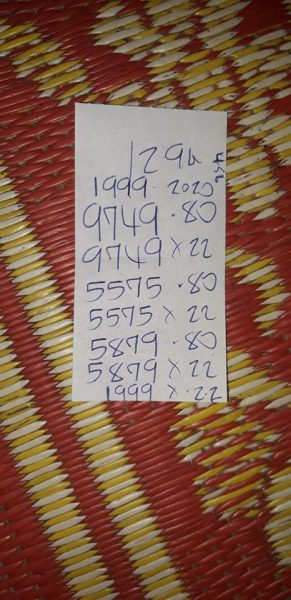 1294
1999. 2020
9749 . 80
9749 x 22
5575 . 80
5575 x 22
5879 . 80
5879 x 22
1999 x . 22